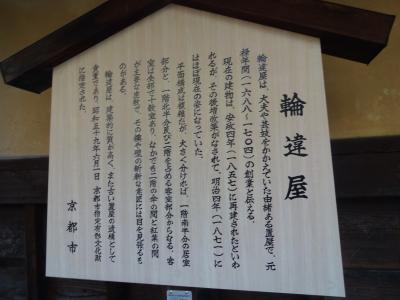 輪違屋
輪違屋は、太夫や芸妓をかかえていた由緒ある置屋で、元
禄年間(一六八八〜一七〇四)の創業と伝える。
現在の建物は、安政四年(一八五七)に再建されたといわ
れるが、その後増改築がなされて、明治四年(一八七一)に
はほぼ現在の姿になっていた。
平面構成は複雑だが、大きく分ければ、一階南半分の居室
部分と、一階北半分及び二階を占める客室部分からなる。客
室は全部で十数室あり、なかでも二階の傘の間と紅葉の間
が主要な座敷で、その襖や壁の斬新な意匠には目を見張るも
のがある。
輪違屋は、建築的に質が高く、また古い置屋の遺構として
貴重であり、昭和五十九年六月一日、京都市指定有形文化財
に指定された。
京都市